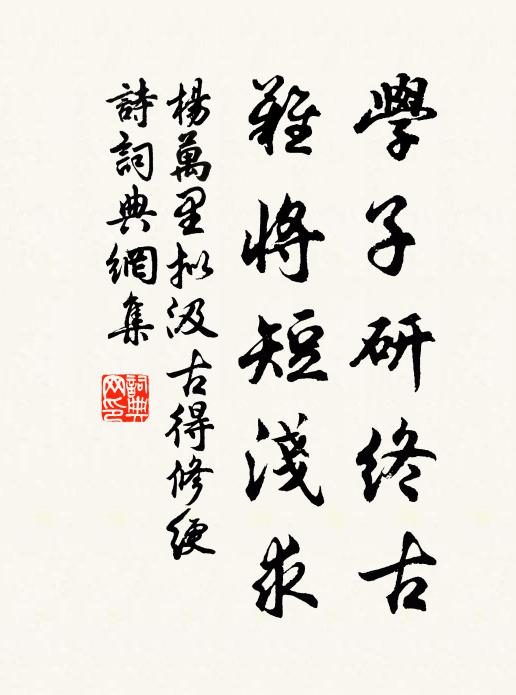 學子研終古
難將短淺求
楊萬里拟汲古得修綆
詩詞典網集
詞典网印